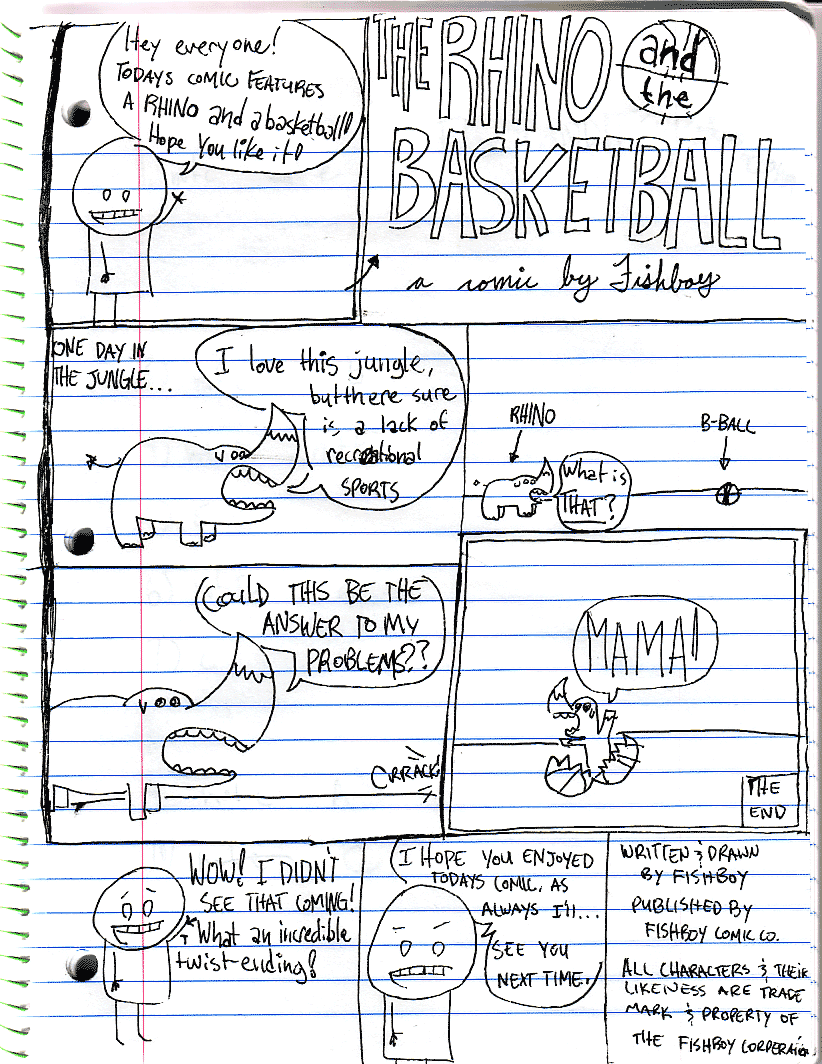 Hey everyone!
TODAYS COMIC FEATURES
A RHINO and a basketball!
Hope You like it!
THE RHINO and the
BASKETBALL
a comic by Fishboy
ONE DAY IN
THE JUNGLE...
I love this jungle,
but there sure
is a lack of
recreational
SPORTS
RHINO
What is
THAT?
B-BALL
COULD THIS BE THE
ANSWER TO MY
PROBLEMS??
CRRACK!
MAMA!
THE
END
WOW! I DIDN'T
SEE THAT COMING!
What an incredible
twist-ending!
I HOPE YOU ENJOYED
TODAYS COMIC, AS
ALWAYS I'll...
SEE YOU
NEXT TIME.
WRITTEN & DRAWN
BY FISHBOY
PUBLISHED BY
FISHBOY COMIC CO.
ALL CHARACTERS & THEIR
LIKENESS ARE TRADE
MARK & PROPERTY OF
THE FISHBOY CORPERATION